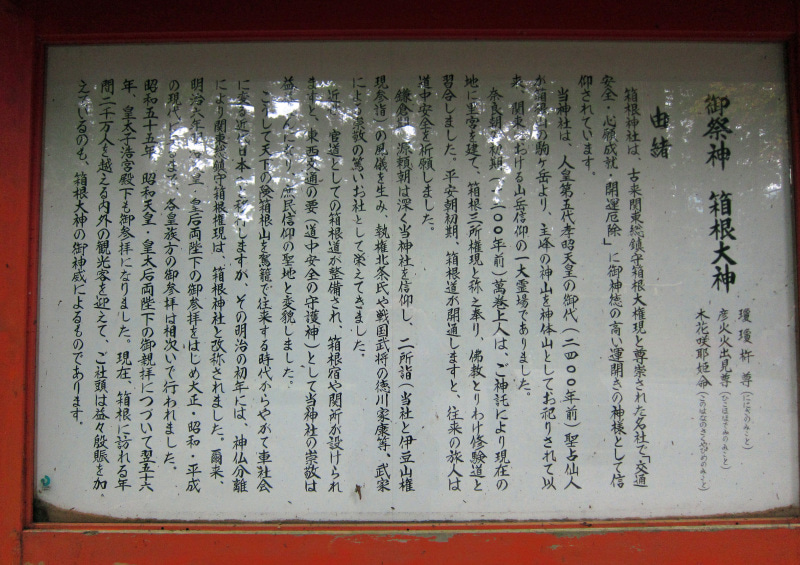 御祭神 箱根大神
瓊瓊杵尊(ににぎのみこと)
彦火火出見尊(ひこほほでみのみこと)
木花咲耶姫命(このはなのさくやひめのみこと)
由緒
箱根神社は、古来関東総鎮守箱根大権現と尊崇された名社で「交通
安全・心願成就・開運厄除」に御神徳の高い運開きの神様として信
仰されています。
当神社は、人皇第五代孝昭天皇の御代(二四〇〇年前)聖占仙人
が箱根山の駒ヶ岳より、主峰の神山を神体山としてお祀りされて以
来、関東における山岳信仰の一大霊場でありました。
奈良朝の初期(一二〇〇年前)萬巻上人は、ご神託により現在の
地に里宮を建て、箱根三所権現と称え奉り、佛教とりわけ修験道と
習合しました。平安朝初期、箱根道が開通しますと、往来の旅人は
道中安全を祈願しました。
鎌倉 源頼朝は深く当神社を信仰し、二所詣(当社と伊豆山権
現参詣)の風儀を生み、執権北条氏や戦国武将の徳川家康等、武家
による崇敬の篤いお社として栄えてきました。
近 官道としての箱根道が整備され、箱根宿や関所が設けられ
ますと、東西交通の要(道中安全の守護神)として当神社の崇敬は
益 庶民信仰の聖地と変貌しました。
こうして天下の険箱根山を駕籠で往来する時代からやがて車社会
に変る近代日本へと移行しますが、その明治の初年には、神仏分離
により関東総鎮守箱根権現は、箱根神社と改称されました。爾来、
明治六年 皇・皇后両陛下の御参拝をはじめ大正・昭和・平成
の現代にいたるまで、各皇族方の御参拝は相次いで行われました。
昭和五十五年 昭和天皇・皇太后両陛下の御親拝につづいて翌五十六
年、皇太子浩宮殿下も御参拝になりました。現在、箱根に訪れる年
間二千万人を越える内外の観光客を迎えて、ご社頭は益々殷賑を加
えているのも、箱根大神の御神威によるものであります。